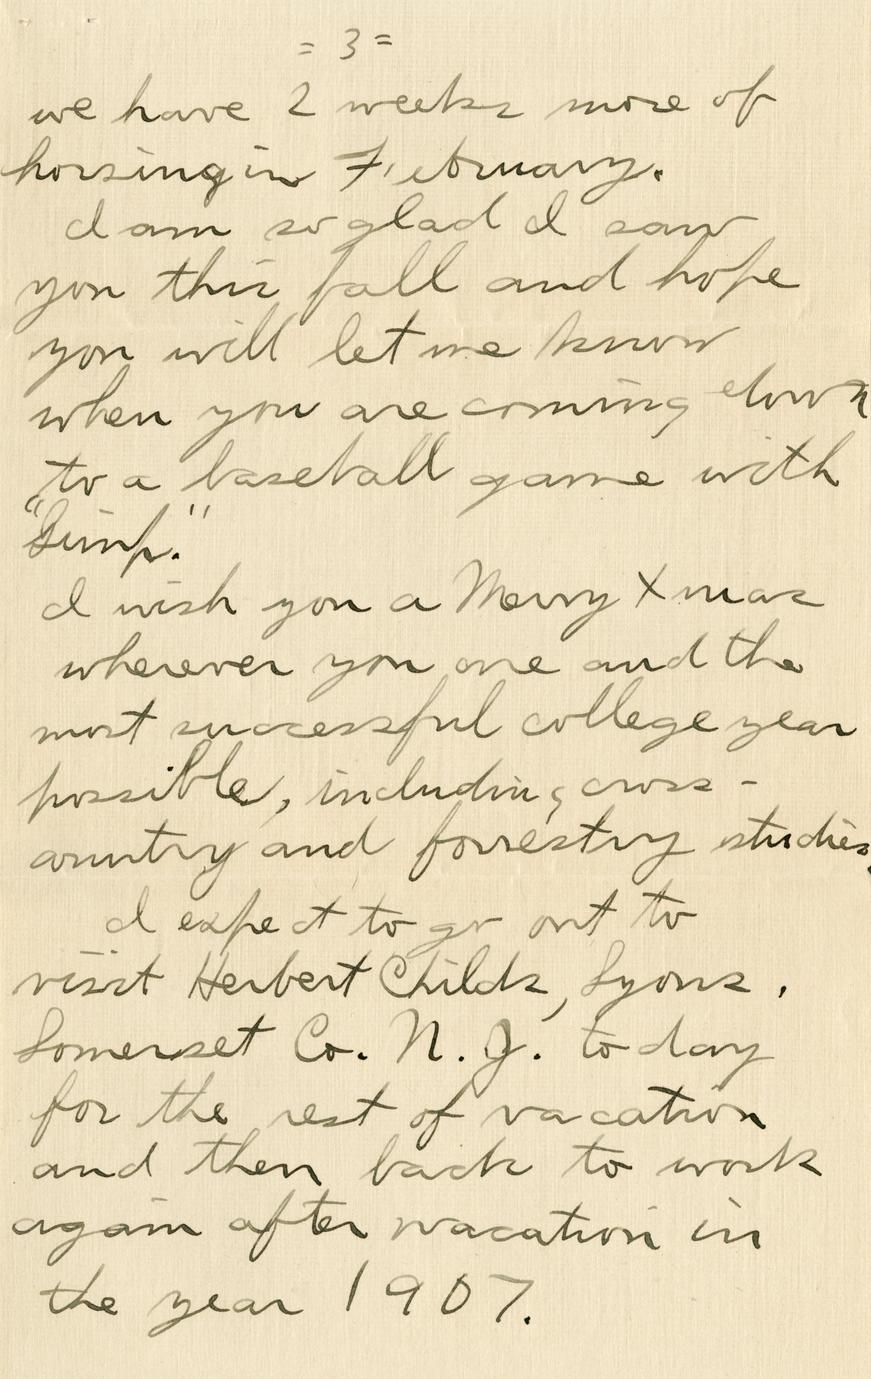 = 3 =
we have 2 weeks more of
horsing in February.
I am so glad I saw
you this fall and hope
you will let me know
when you are coming down
to a baseball game with
"Simp."
I wish you a Merry Xmas
wherever you are and the
most successful college year
possible, including cross-
country and forrestry studies,
I expect to go out to
visit Herbert Childs, Lyons.
Somerset Co. N.J. today
for the rest of vacation
and then back to work
again after vacation in
the year 1907.